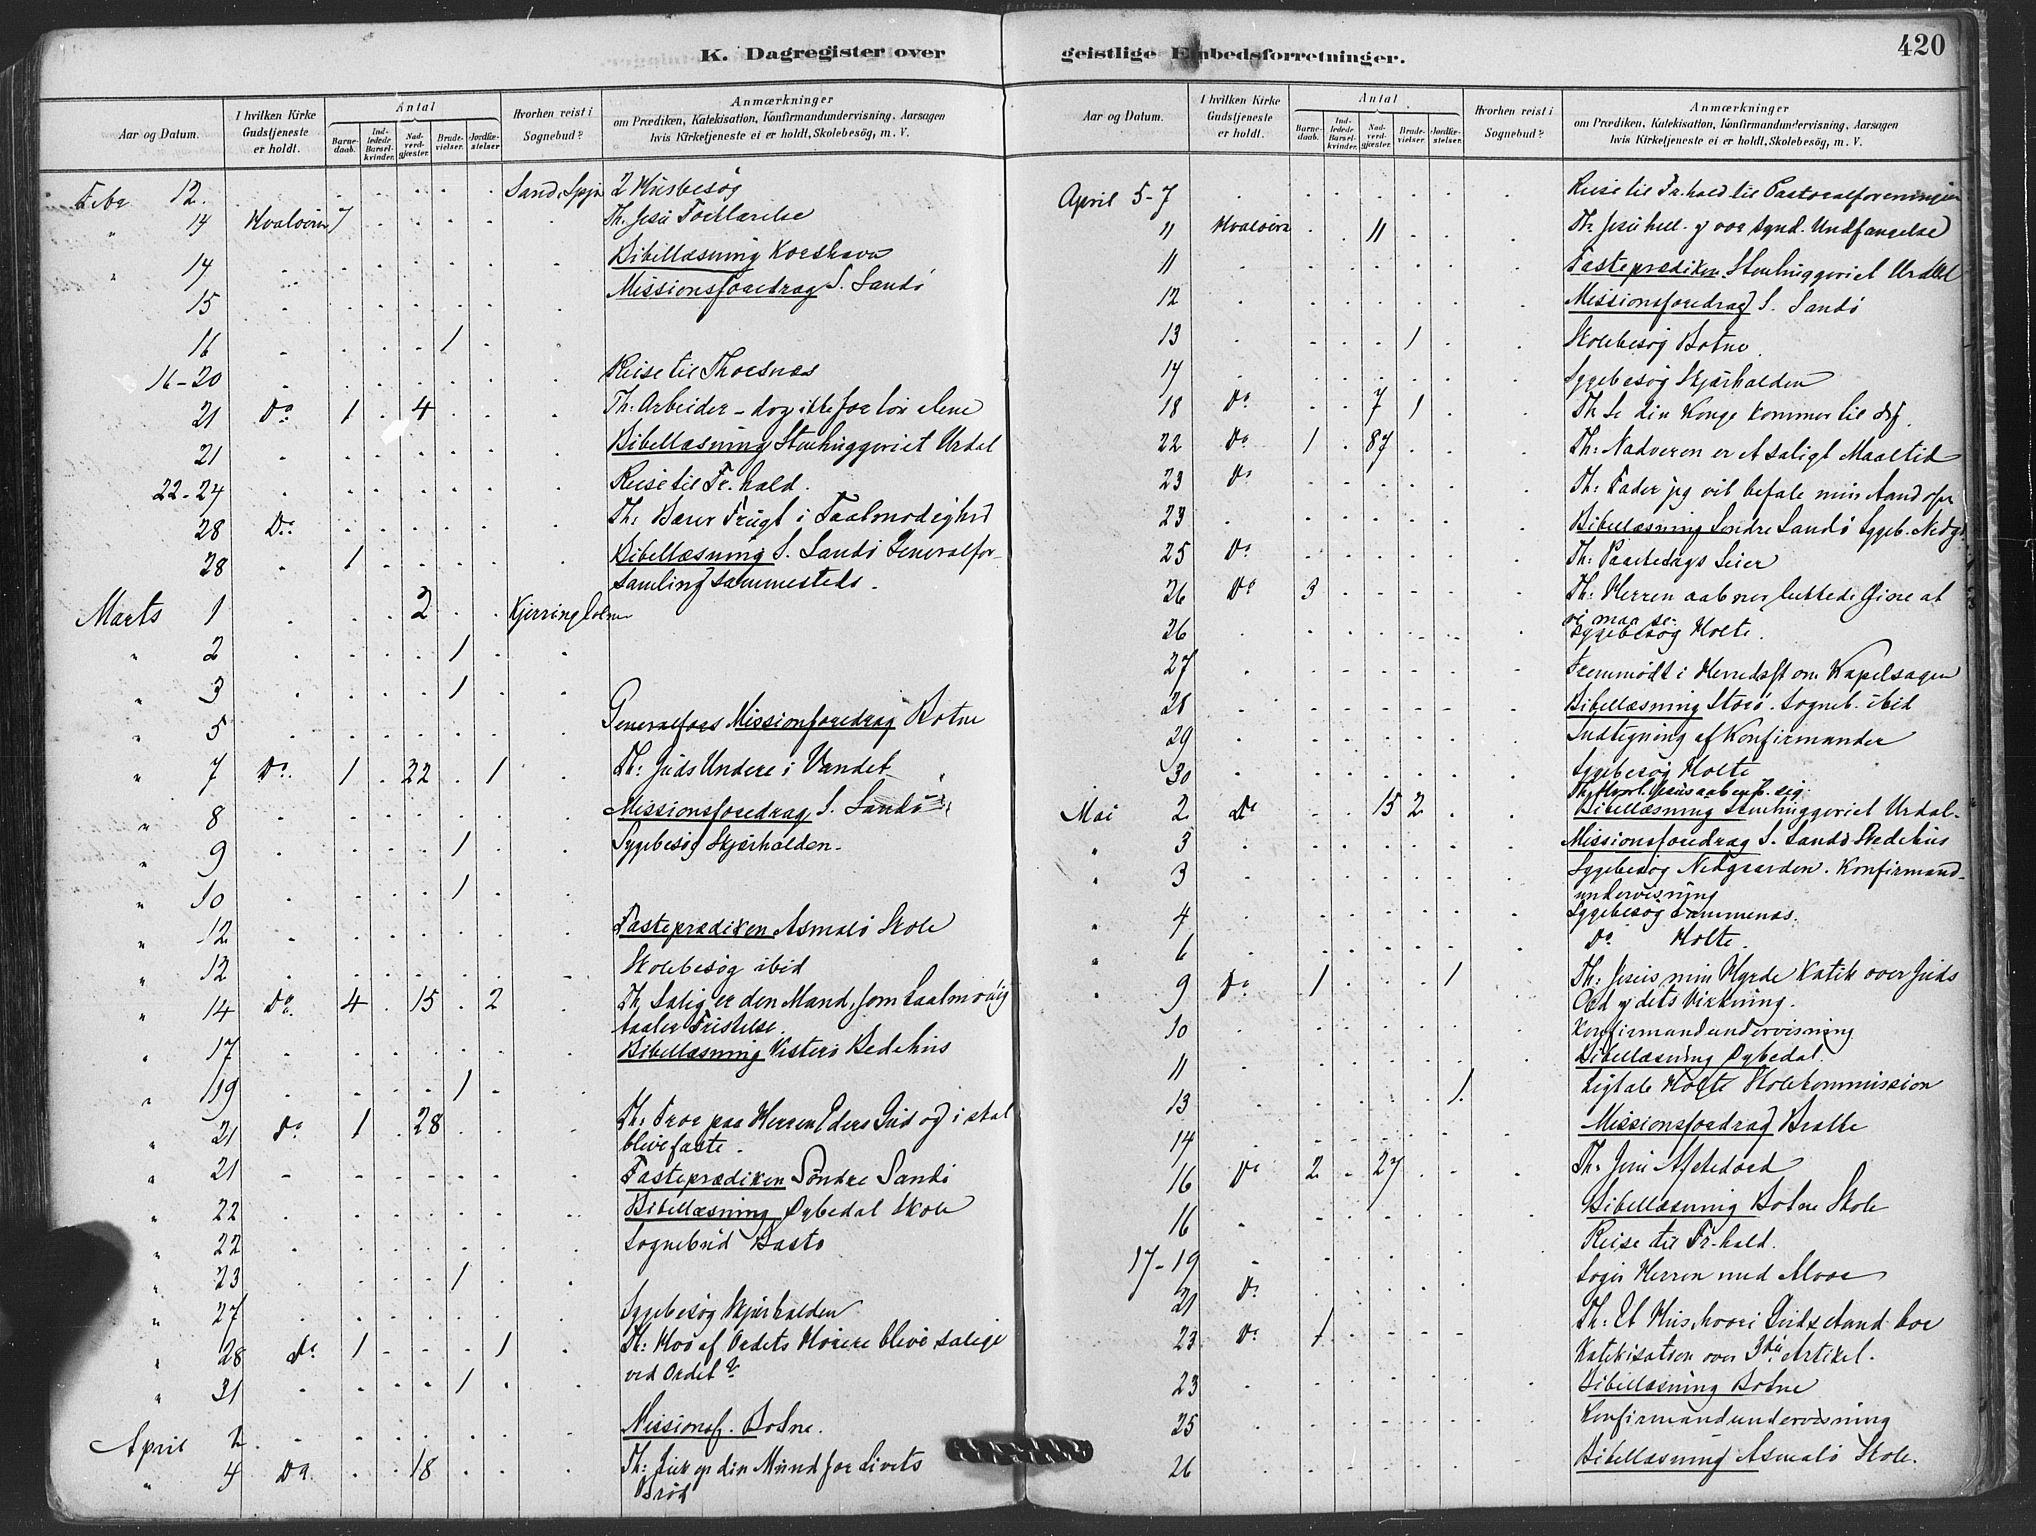 K. Dagregister over
Aar og Datum.
I hvilken Kirke Gudstjeneste er holdt.
Antal
Barne-daab.
Ind-ledede Barsel-kvinder.
Nad-verd-gjæster.
Brude-vielser.
Jordfæ-stelser
Hvorhen reist i Sognebud?
Anmærkninger
om Prædiken, Katekisation, Konfirmandundervisning, Aarsagen
hvis Kirketjeneste ei er holdt, Skolebesög, m. V.
Febr 12. 2 Husbesøg
" 14 Hvaløerne 7 Th. Jesu Forklarelse
" 14 Bibellæsning Korshavn
15 Missionsforedrag S. Sandö
16 1
16-20 Reise til Thorsnæs
21 Do. 1 4 Th: Arbeider - dog ikke for lön alene
21 Bibellæsning Stenhuggeriet Urdal
22-24 Reise til Fr.hald.
28 Do. Th: Bærer Frugt i Taalmodighed
28 1 Bibellæsning S. Sandö Generalfor-
samling sammesteds.
Marts 1 2 Kjerringholmen
" 2 1
" 3 1
" 5 Generalfors Missionsforedrag Botne
" 7 Do. 1 22 1 Th: Guds Undere i Vandet
" 8 Missionsforedrag S. Sandö
" 9 1 Sygebesög Skjærhalden
" 10 1
" 12 Fasteprædiken Asmalö Skole
" 12 Skolebesøg ibid
" 14 Do. 4 15 2 Th. Salig er den Mand, som taalmodig
taaler Fristelse.
" 17 Bibellæsning Vesterö Bedehus
" 19 1
" 21 Do. 1 28 Th: Troe paa Herren Eders Gud og i skal
blive faste.
" 21 Fasteprædiken Søndre Sandö
" 22 Bibellæsning Dybedal Skole
" 22 Sognebud Bastö
" 23 1
" 27 Sygebesøg Skjærhalden
" 28 Do. 1 1 Th: Hvo af Ordets Hörere blive salige
ved Ordet?
" 31 1
April 2 Missionsf. Botne.
" 4 Do. 18 Th: Luk op din Mund for Livets
Brød
geistlige Embedsforretninger.
420
Aar og Datum.
I hvilken Kirke Gudstjeneste er holdt.
Antal
Barne-daab.
Ind-ledede Barsel-kvinder.
Nad-verd-gjæster.
Brude-vielser.
Jordfæ-stelser.
Hvorhen reist i Sognebud?
Anmærkninger
om Prædiken, Katekisation, Konfirmandundervisning, Aarsagen
hvis Kirketjeneste ei er holdt, Skolebesög, m. V.
April 5-7 Reise til Fr.hald til Pastoralforeningen
11 Hvaløerne 11 Th: Jesu hell. og vor synd. Undfangelse
11 Fasteprædiken Stenhuggeriet Urdal
12 Missionsforedrag S. Sandö
13 1 Skolebesøg Botne
14 Sygebesøg Skjærhalden
18 Do 7 1 Th Se din Konge kommer til dig.
22 Do 1 87 Th: Nadveren er et saligt Maaltid
23 Do Th: Fader jeg vil befale min Aand
23 Bibellæsning Søndre Sandö Sygeb. Nedg.
25 Do Th: Paaskedags Seier
26 Do 3 Th: Herren aabner lukkede Öine at
vi maa se.
26 Sygebesøg Holte.
27 Fremmødt i Herredsst om Kapelsagen
28 Bibellæsning Storö. Sogneb. ibid
29 Indtegning af Konfirmander
30 Sygebesøg Holte
Mai 2 Do 15 2 Th: Hvorl. Jesus aabenb. sig
Bibellæsning Stenhuggeriet Urdal
" 3 Missionsforedrag S. Sandö Bedehus
" 3 Sygebesøg Nedgaarden. Konfirmand-
undervisning
" 4 Sygebesøg
" 6 Do Holte.
" 9 Do 1 1 Th: Jesus min Hyrde Katek over Guds
Ord og dets Virkning.
10 Konfirmandundervisning
11 Bibellæsning Dybedal.
13 1. Ligtale Holte Skolekommission
14 Missionsforedrag Bratte
16 Do 2 27 Th: Jesu Afskedsord
16 Bibellæsning Botne Skole
17-19 Reise til Fr-hald.
21 Do Søger Herren med Alvor
23 Do 1 Th: Et Hus hvori Guds Aand bor
Katekisation over 3die Artikel.
23 Bibellæsning Botne
25 Konfirmandundervisning
26 Bibellæsning Asmalö Skole.